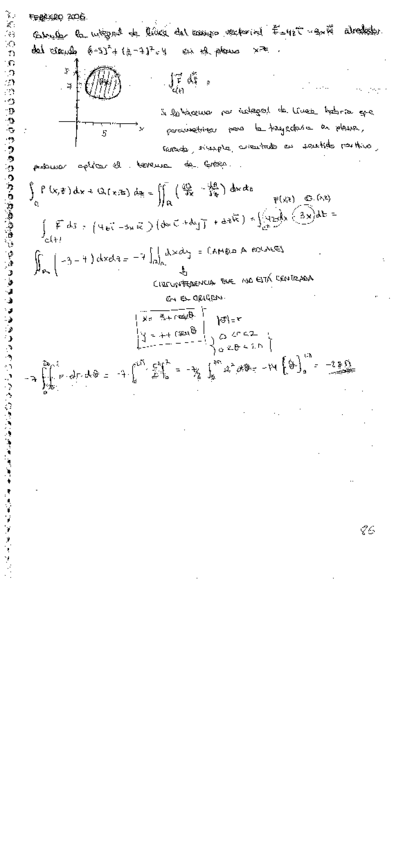 FEBRERO 2006
Calcular la integral de línea del campo vectorial F = 4z i - 3x k alrededor
del círculo (x-5)² + (z-7)² = 4 en el plano xz.
z
7
5
x
∫ F dr =
c(+)
Si lo hacemos por integral de línea habría que
parametrizar pero la trayectoria es plana,
cerrada, simple, orientada en sentido positivo,
podemos aplicar el teorema de Green.
∫ P(x,z) dx + Q(x,z) dz = ∬ (∂Q/∂x - ∂P/∂z) dx dz
P(x,z) Q(x,z)
∫ F ds = (4z i - 3x k) (dx i + dy j + dz k) = ∫ 4z dx - 3x dz =
c(+)
∬ (-3-4) dx dz = -7 ∬ dx dy = CAMBIO A POLARES
CIRCUNFERENCIA QUE NO ESTÁ CENTRADA
EN EL ORIGEN.
|J| = r
0 < r < 2
0 < θ < 2π
86